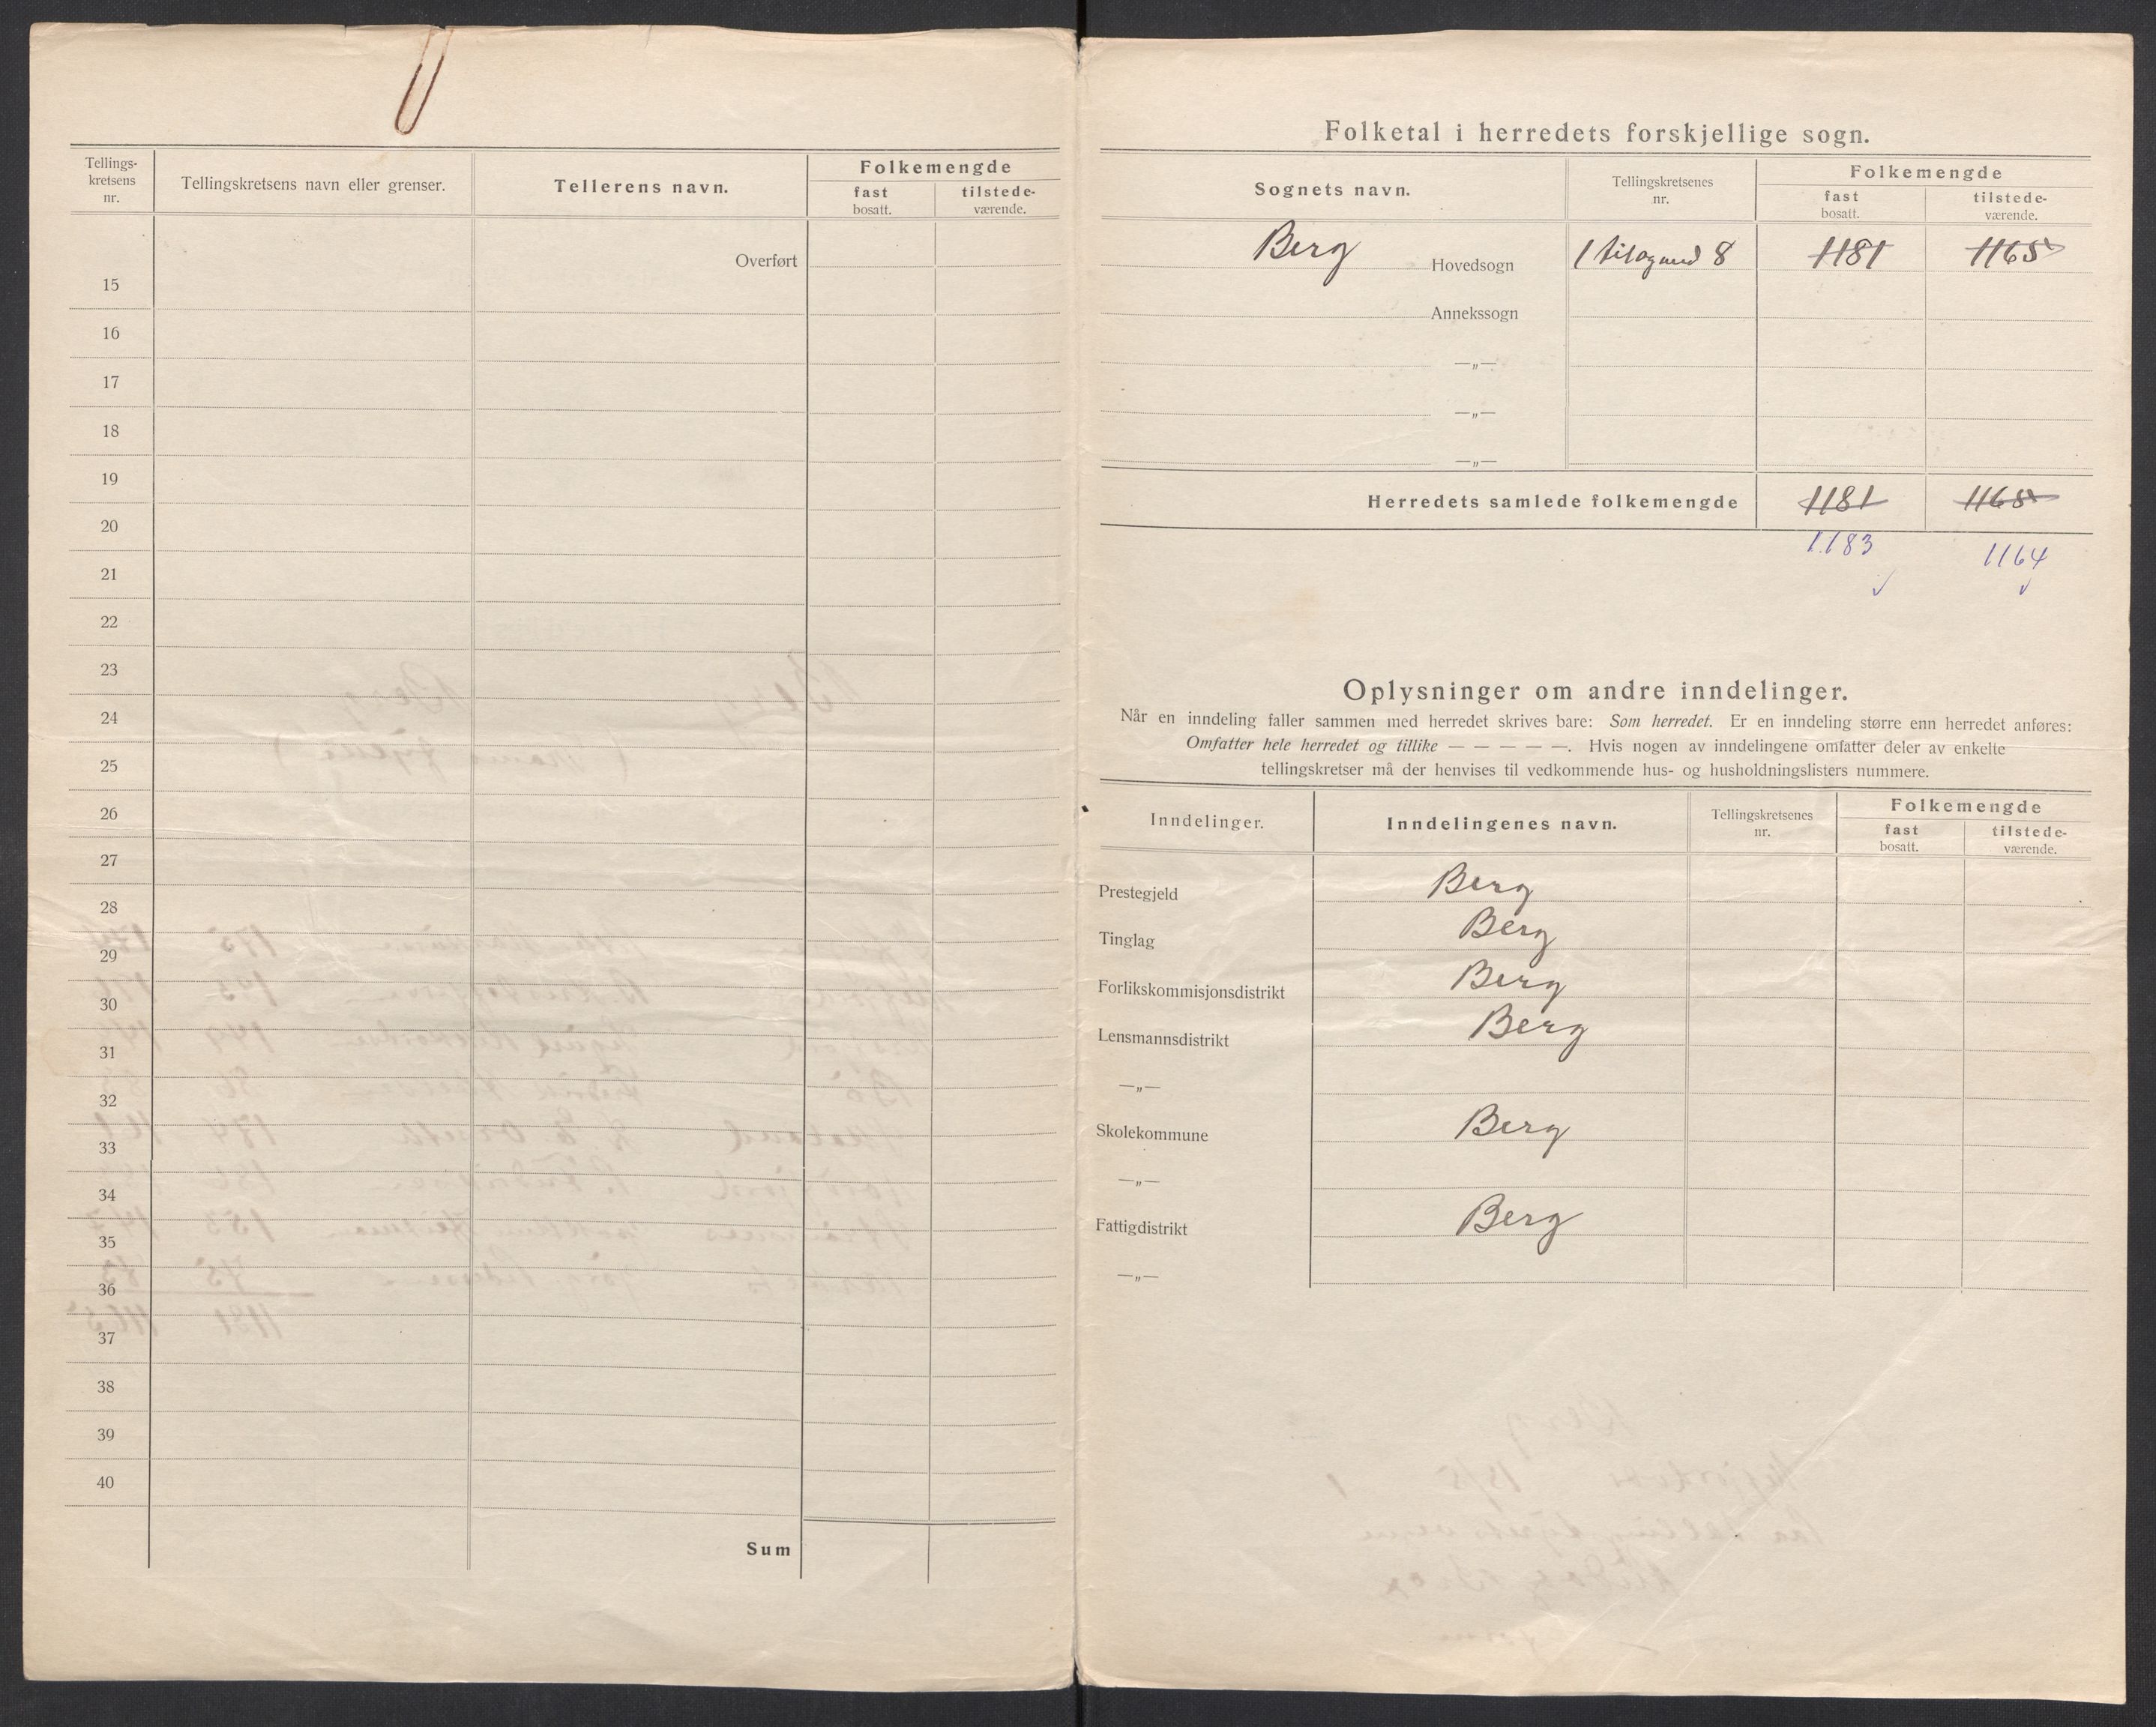 Tellings-
kretsens
nr.
Tellingskretsens navn eller grenser.
Tellerens navn.
Folkemengde
fast
bosatt.
tilstede-
værende.
Overført
15
16
17
18
19
20
21
22
23
24
25
26
27
28
29
30
31
32
33
34
35
36
37
38
39
40
Sum
Folketal i herredets forskjellige sogn.
Sognets navn.
Tellingskretsenes
nr.
Folkemengde
fast
bosatt.
tilstede-
værende.
Berg Hovedsogn 1 til og med 8 1181 1165
Annekssogn
—„—
—„—
—„—
Herredets samlede folkemengde 1181 1165
1183 1164
Oplysninger om andre inndelinger.
Når en inndeling faller sammen med herredet skrives bare: Som herredet. Er en inndeling større enn herredet anføres:
Omfatter hele herredet og tillike — — — — —. Hvis nogen av inndelingene omfatter deler av enkelte
tellingskretser må der henvises til vedkommende hus- og husholdningslisters nummere.
Inndelinger.
Inndelingenes navn.
Tellingskretsenes
nr.
Folkemengde
fast
bosatt.
tilstede-
værende.
Prestegjeld Berg
Tinglag Berg
Forlikskommisjonsdistrikt Berg
Lensmannsdistrikt Berg
—„—
Skolekommune Berg
—„—
Fattigdistrikt Berg
—„—